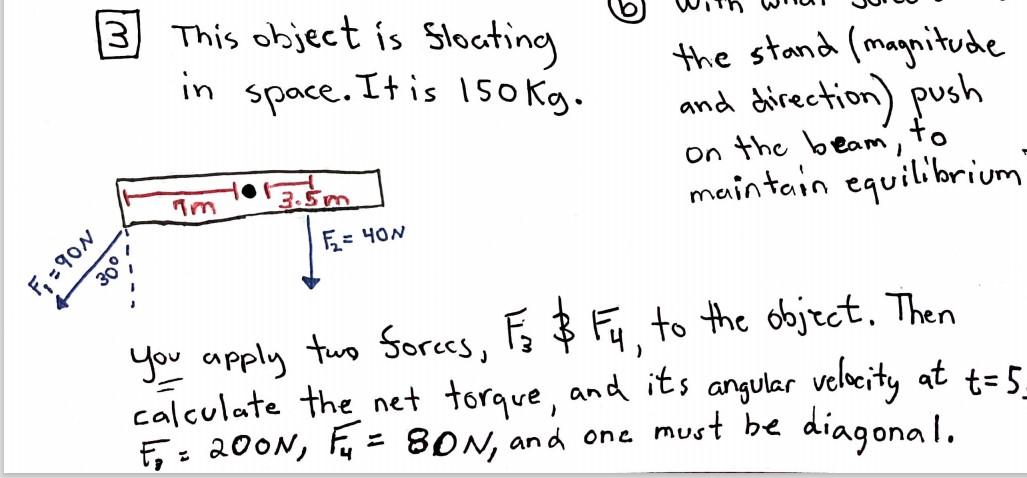 3 This object is floating
in space. It is 150 Kg.
7m
3.5m
F₁ = 90N
30°
F₂ = 40N
You apply two forces, F₃ & F₄, to the object. Then
calculate the net torque, and its angular velocity at t=5
F₃ = 200N, F₄ = 80N, and one must be diagonal.
b)
the stand (magnitude
and direction) push
on the beam, to
maintain equilibrium